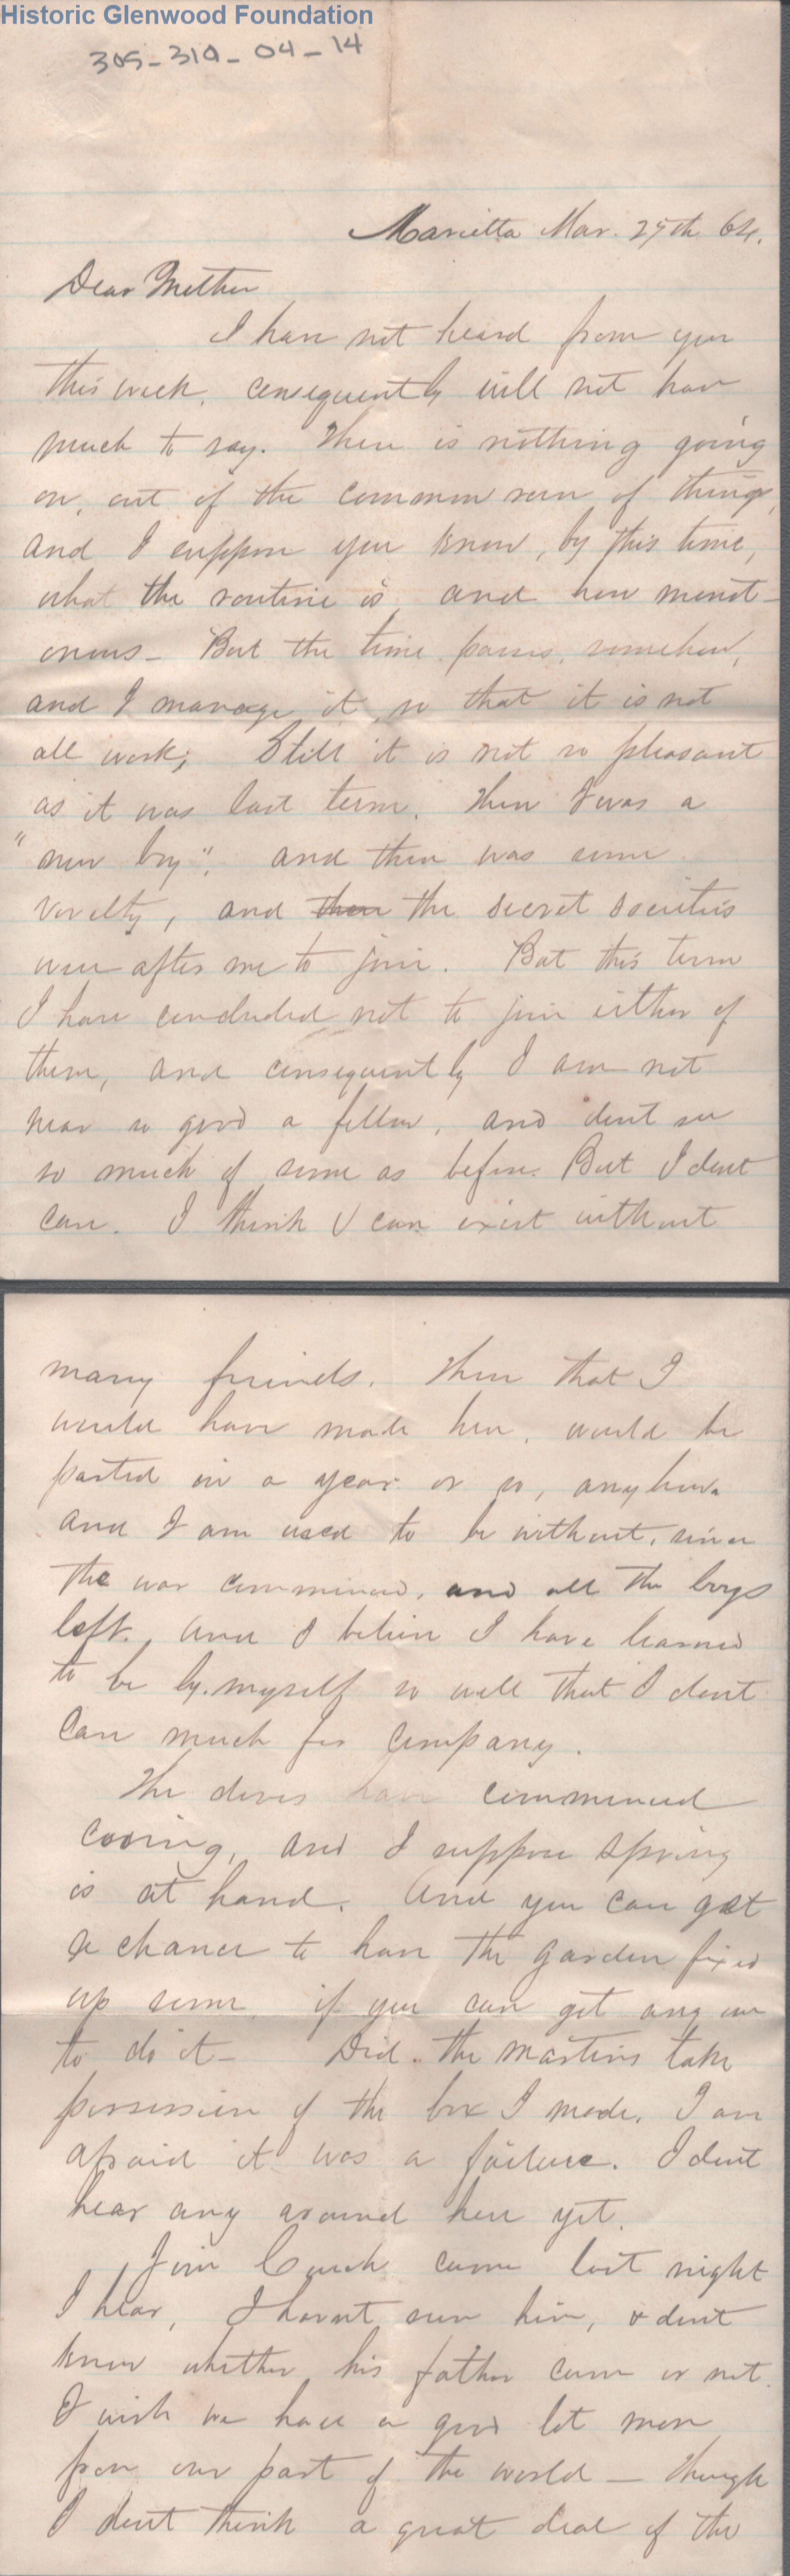 Historic Glenwood Foundation
305-319-04-14
Marietta Mar. 27th 64.
Dear Mother
I have not heard from you
this week, consequently will not have
much to say. There is nothing going
on, out of the common run of things,
and I suppose you know, by this time,
what the routine is, and how monot-
onous - But the time passes, somehow,
and I manage it, so that it is not
all work; Still it is not so pleasant
as it was last term. Then I was a
"new boy", and there was some
novelty, and then the secret societies
were after me to join. But this term
I have concluded not to join either of
them, and consequently I am not
near so good a fellow, and dont see
so much of some as before. But I dont
care. I think I can exist without
many friends. Them that I
would have made here, would be
parted in a year or so, anyhow.
and I am used to be without, since
the war commenced, and all the boys
left. And I believe I have learned
to be by myself so well that I dont
care much for company.
The doves have commenced
cooing, and I suppose spring
is at hand. And you can get
a chance to have the garden fixed
up some, if you can get any one
to do it - Did the martins take
possession of the box I made. I am
afraid it was a failure. I dont
hear any around here yet.
Jim Couch came last night
I hear, I havnt seen him, & dont
know whether his father came or not.
I wish we had a good lot more
from our part of the world - though
I dont think a great deal of the